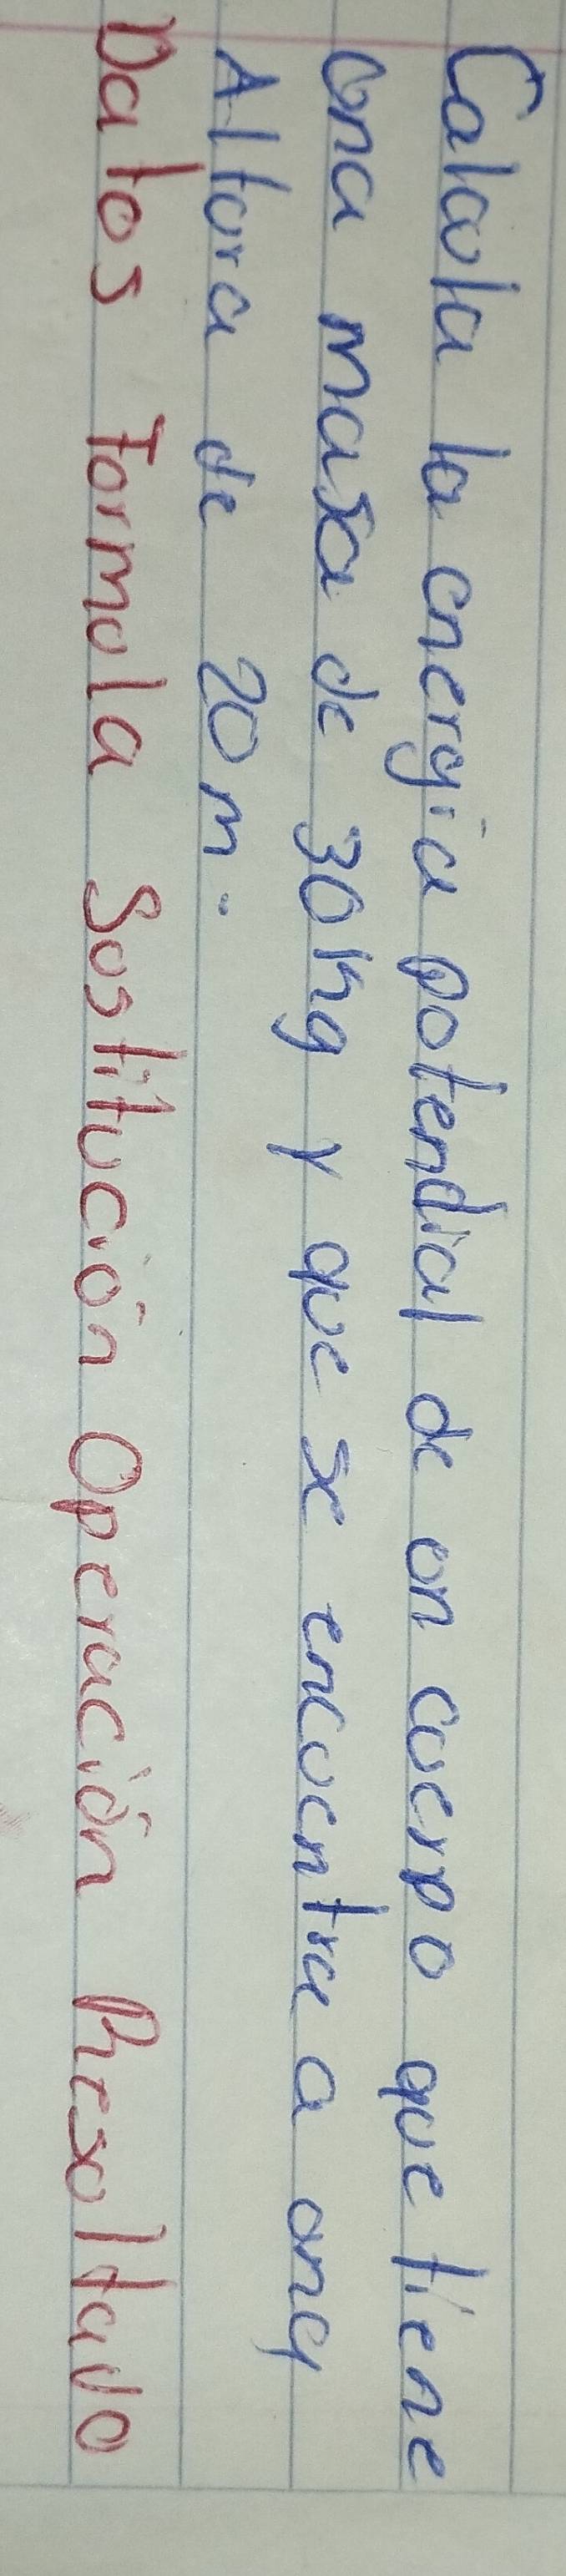 Calcula la energía potendial de un cuerpo que tiene
una masa de 30kg y que se encuentra a una
Altura de 20m.
Datos Formula Sostitución Operación Resoltado